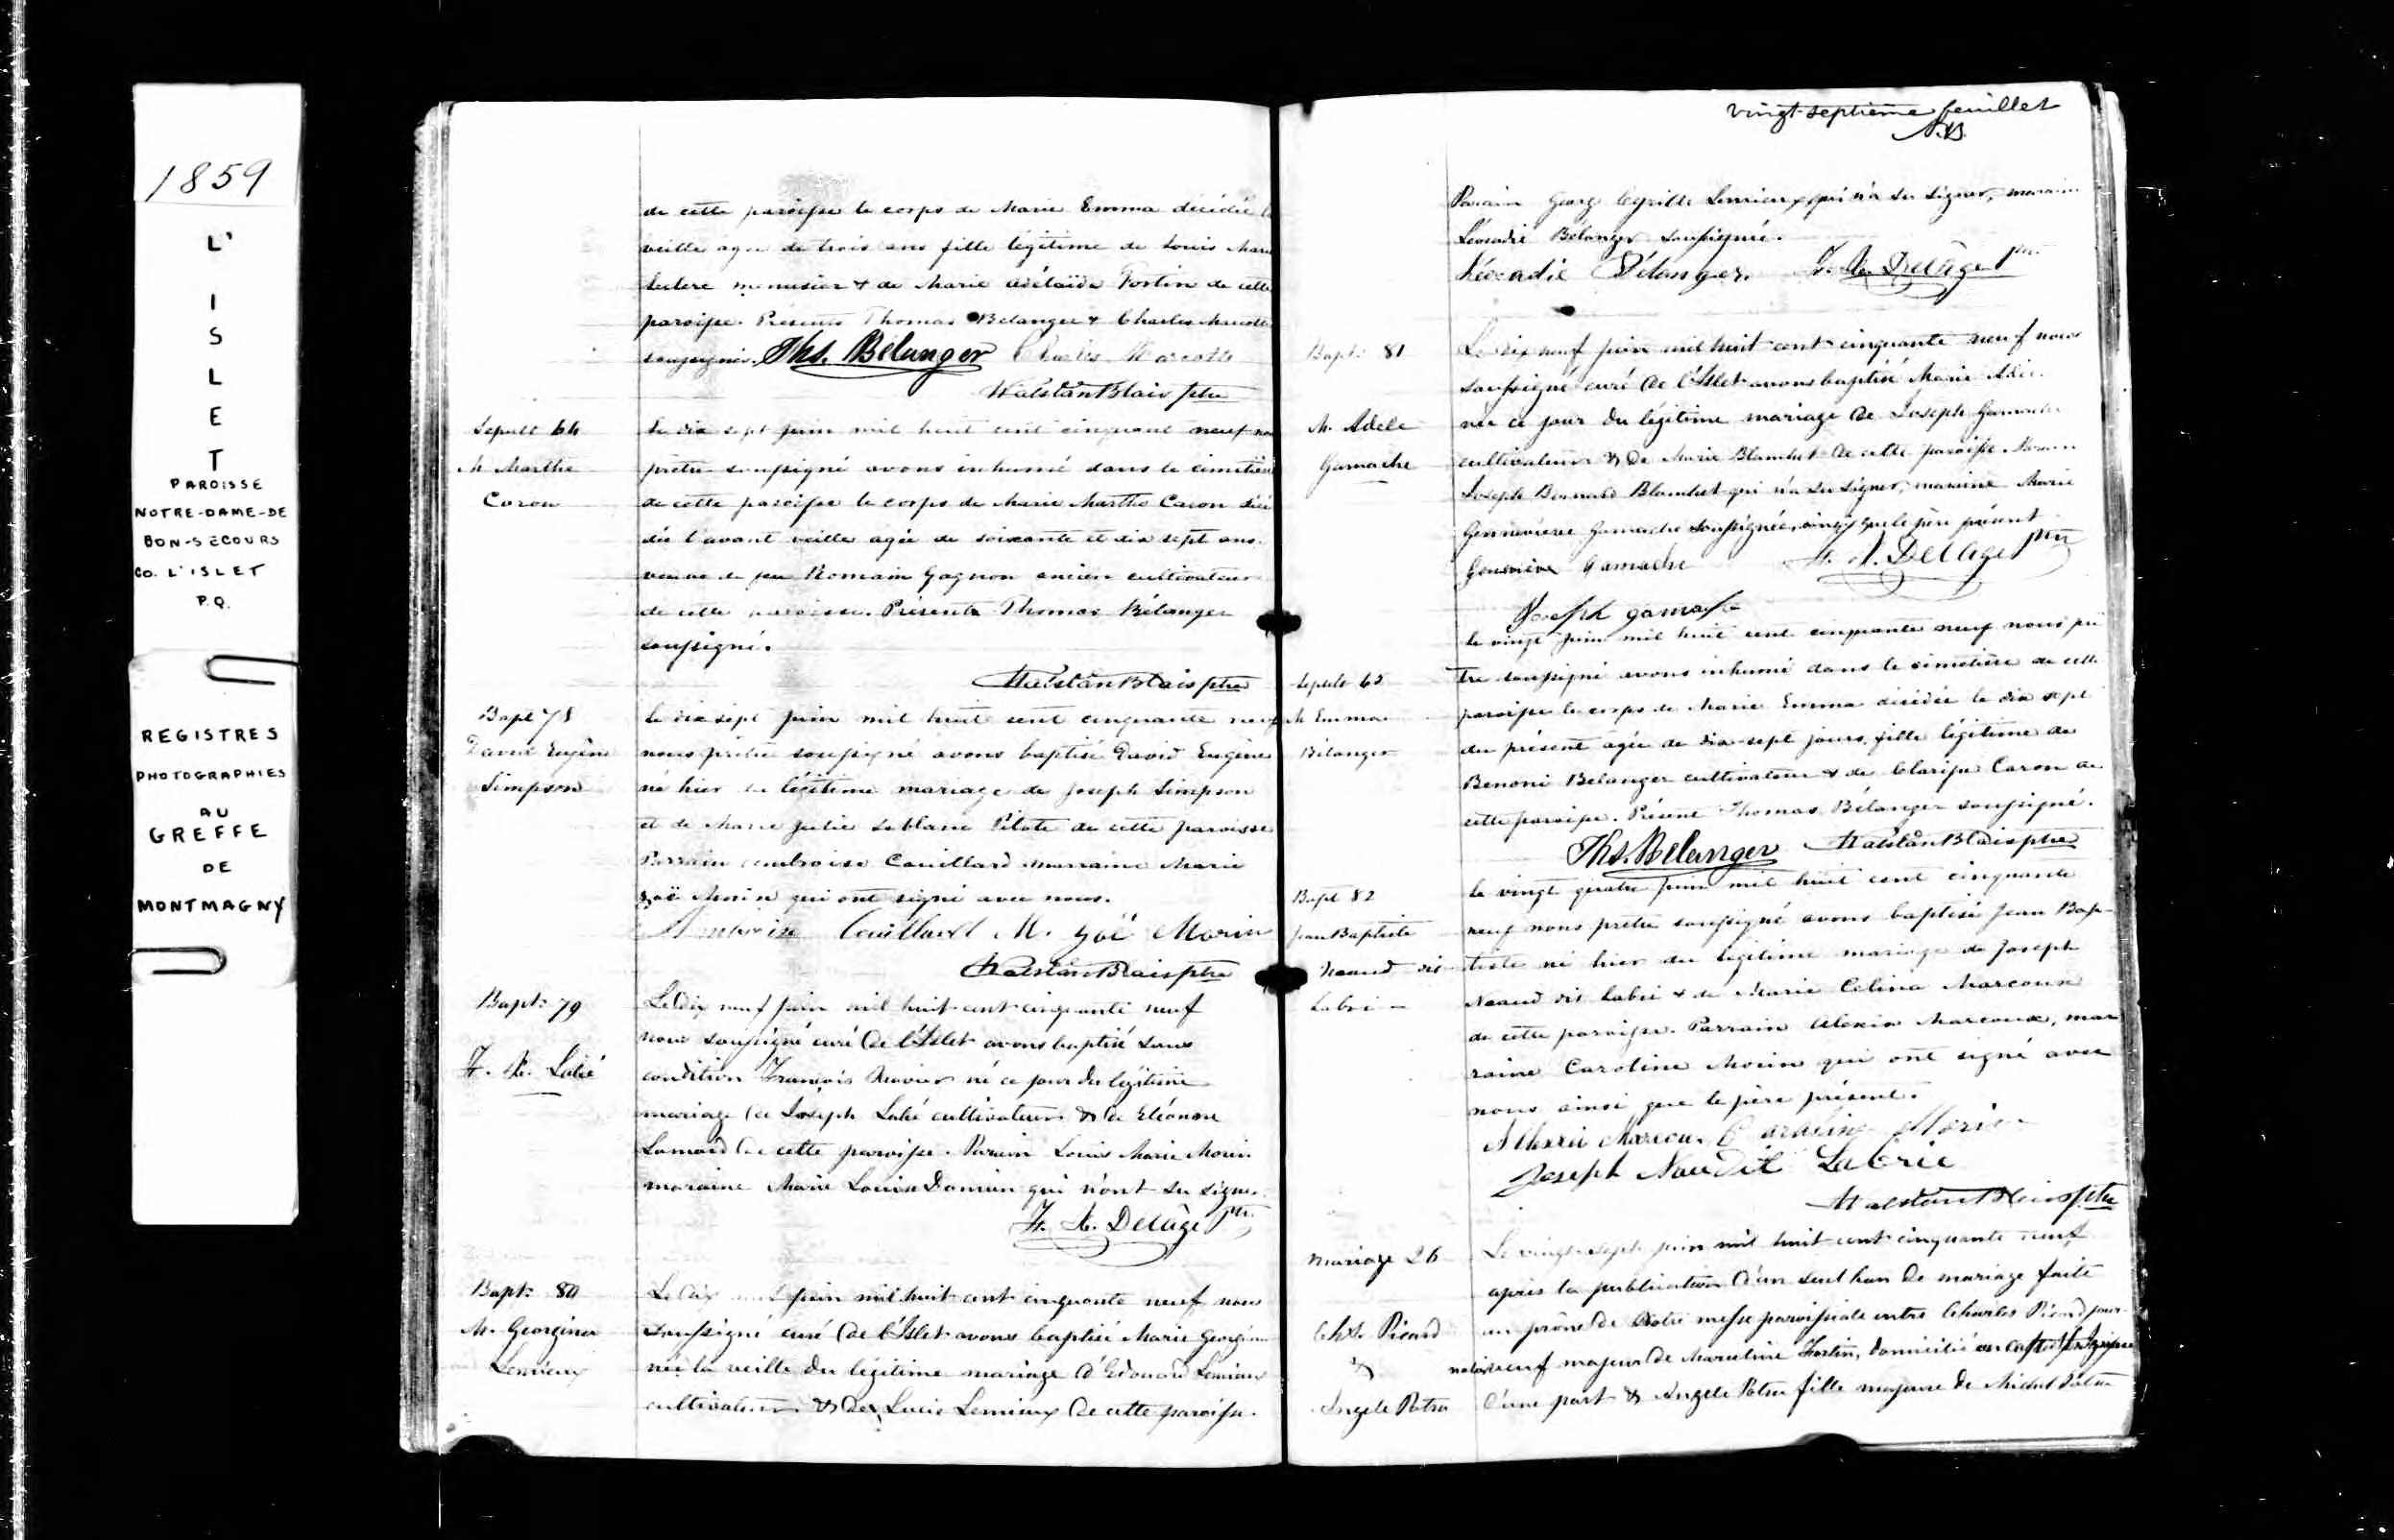 1859
L'
I
S
L
E
T
PAROISSE
NOTRE-DAME-DE
BON-SECOURS
Co. L'ISLET
P.Q.
REGISTRES
PHOTOGRAPHIES
AU
GREFFE
DE
MONTMAGNY
de cette paroisse le corps de Marie Emma décédée la
veille agée de trois ans fille légitime de Louis Marie
Leclerc menuisier & de Marie Adélaïde Fortin de cette
paroisse. Présents Thomas Bélanger & Charles Marcotte
soussignés. Ths. Bélanger Charles Marcotte
NalstanBlais ptre
Sepult 64
M Marthe
Caron
Le dix sept juin mil huit cent cinquante neuf nous
prêtre soussigné avons inhumé dans le cimetière
de cette paroisse le corps de Marie Marthe Caron décé
dée l'avant veille agée de soixante et dix sept ans.
veuve de feu Romain Gagnon ancien cultivateur
de cette paroisse. Présents Thomas Bélanger
soussigné.
NalstanBlais ptre
Bapt 78
David Eugène
Simpson
Le dix sept juin mil huit cent cinquante neuf
nous prêtre soussigné avons baptisé David Eugène
né hier du légitime mariage de Joseph Simpson
et de Marie Julie Leblanc Pilote de cette paroisse
Parrain Ambroise Couillard marraine Marie
Zoë Morin qui ont signé avec nous.
Ambroise Couillard M. Zoé Morin
NalstanBlais ptre
Bapt: 79
F. X. Labé
Le dix neuf juin mil huit cent cinquante neuf
nous soussigné curé de l'Islet avons baptisé sous
condition François Xavier né ce jour du légitime
mariage de Joseph Labé cultivateur & de Eléonore
de cette paroisse. Parain Louis Marie Morin
maraine Marie Louise qui n'ont su signer.
F. X. Delâge ptre
Bapt: 80
M. Georgina
Lemieux
Le dix juin mil huit cent cinquante neuf nous
soussigné curé de l'Islet avons baptisé Marie Georgina
née la veille du légitime mariage d'Edouard Lemieux
cultivateur & de Lucie Lemieux de cette paroisse.
vingt-septième feuillet
Parain Georg Cyrille Lemieux qui n'a su signer, maraine
Léocadie Bélanger soussignée.
Léocadie Bélanger. F. X. Delâge ptre
Bapt: 81
M. Adele
Gamache
Le dix neuf juin mil huit cent cinquante neuf nous
soussigné curé de l'Islet avons baptisé Marie Adèle
née ce jour du légitime mariage de Joseph Gamache
cultivateur & de Marie Blanchet de cette paroisse. Parain
Joseph Bernard Blanchet qui n'a su signer, maraine Marie
Gennevieve Gamache soussignée, ainsi que le père présent
Geneviève Gamache F. X. Delâge ptre
Joseph gamache
Sepult 65
M Emma
Bélanger
le vingt juin mil huit cent cinquante neuf nous prê
tre soussigné avons inhumé dans le cimetière de cette
paroisse le corps de Marie Emma décédée le dix sept
du présent agée de dix-sept jours, fille légitime de
Benoni Bélanger cultivateur & de Clarisse Caron de
cette paroisse. Présent Thomas Bélanger soussigné.
Ths. Bélanger NalstanBlais ptre
Bapt 82
Jean Baptiste
Naud dit
Labrie
le vingt quatre juin mil huit cent cinquante
neuf nous prêtre soussigné avons baptisé Jean Bap-
tiste né hier du légitime mariage de Joseph
Naud dit Labrie & de Marie Célina Marcoux
de cette paroisse. Parrain Alexis Marcoux, mar
raine Caroline Morin qui ont signé avec
nous ainsi que le père présent.
Alexis Marcou Caroline Morin
Joseph Nau Dit Labrie
NalstanBlais ptre
Mariage 26
Chs. Picard
&
Angele Potra
Le vingt-sept juin mil huit cent cinquante neuf
après la publication d'un seul ban de mariage faite
au prône de notre messe paroissiale entre Charles Picard jour-
nalier veuf majeur de Marceline Fortin, domicilié en cette paroisse
d'une part & Angele Potra fille majeure de Michel Potra